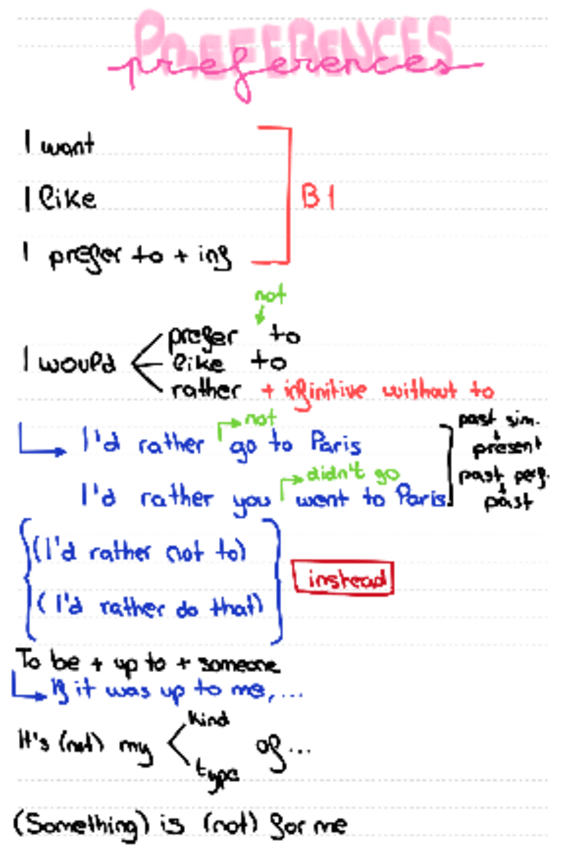 PREFERENCES
preferences
I want
I like
B1
I prefer to + ing
not
prefer to
I would like to
rather + infinitive without to
not
I'd rather go to Paris
past sim.
present
didn't go
past perf.
I'd rather you went to Paris
past
(I'd rather not to)
instead
(I'd rather do that)
To be + up to + someone
If it was up to me, ...
kind
It's (not) my of...
type
(Something) is (not) for me